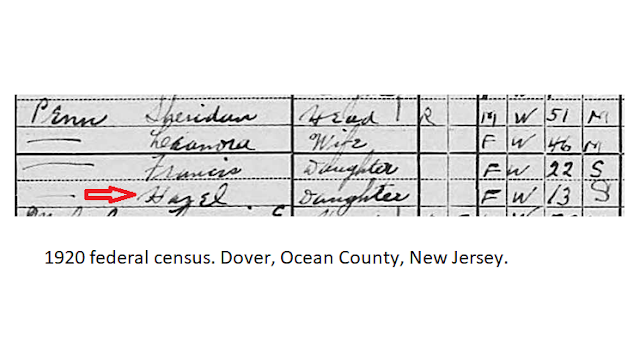 Penn Sheridan Head R M W 51 M
— Leeanora Wife F W 46 M
— Francis Daughter F W 22 S
— Hazel Daughter F W 13 S
1920 federal census. Dover, Ocean County, New Jersey.